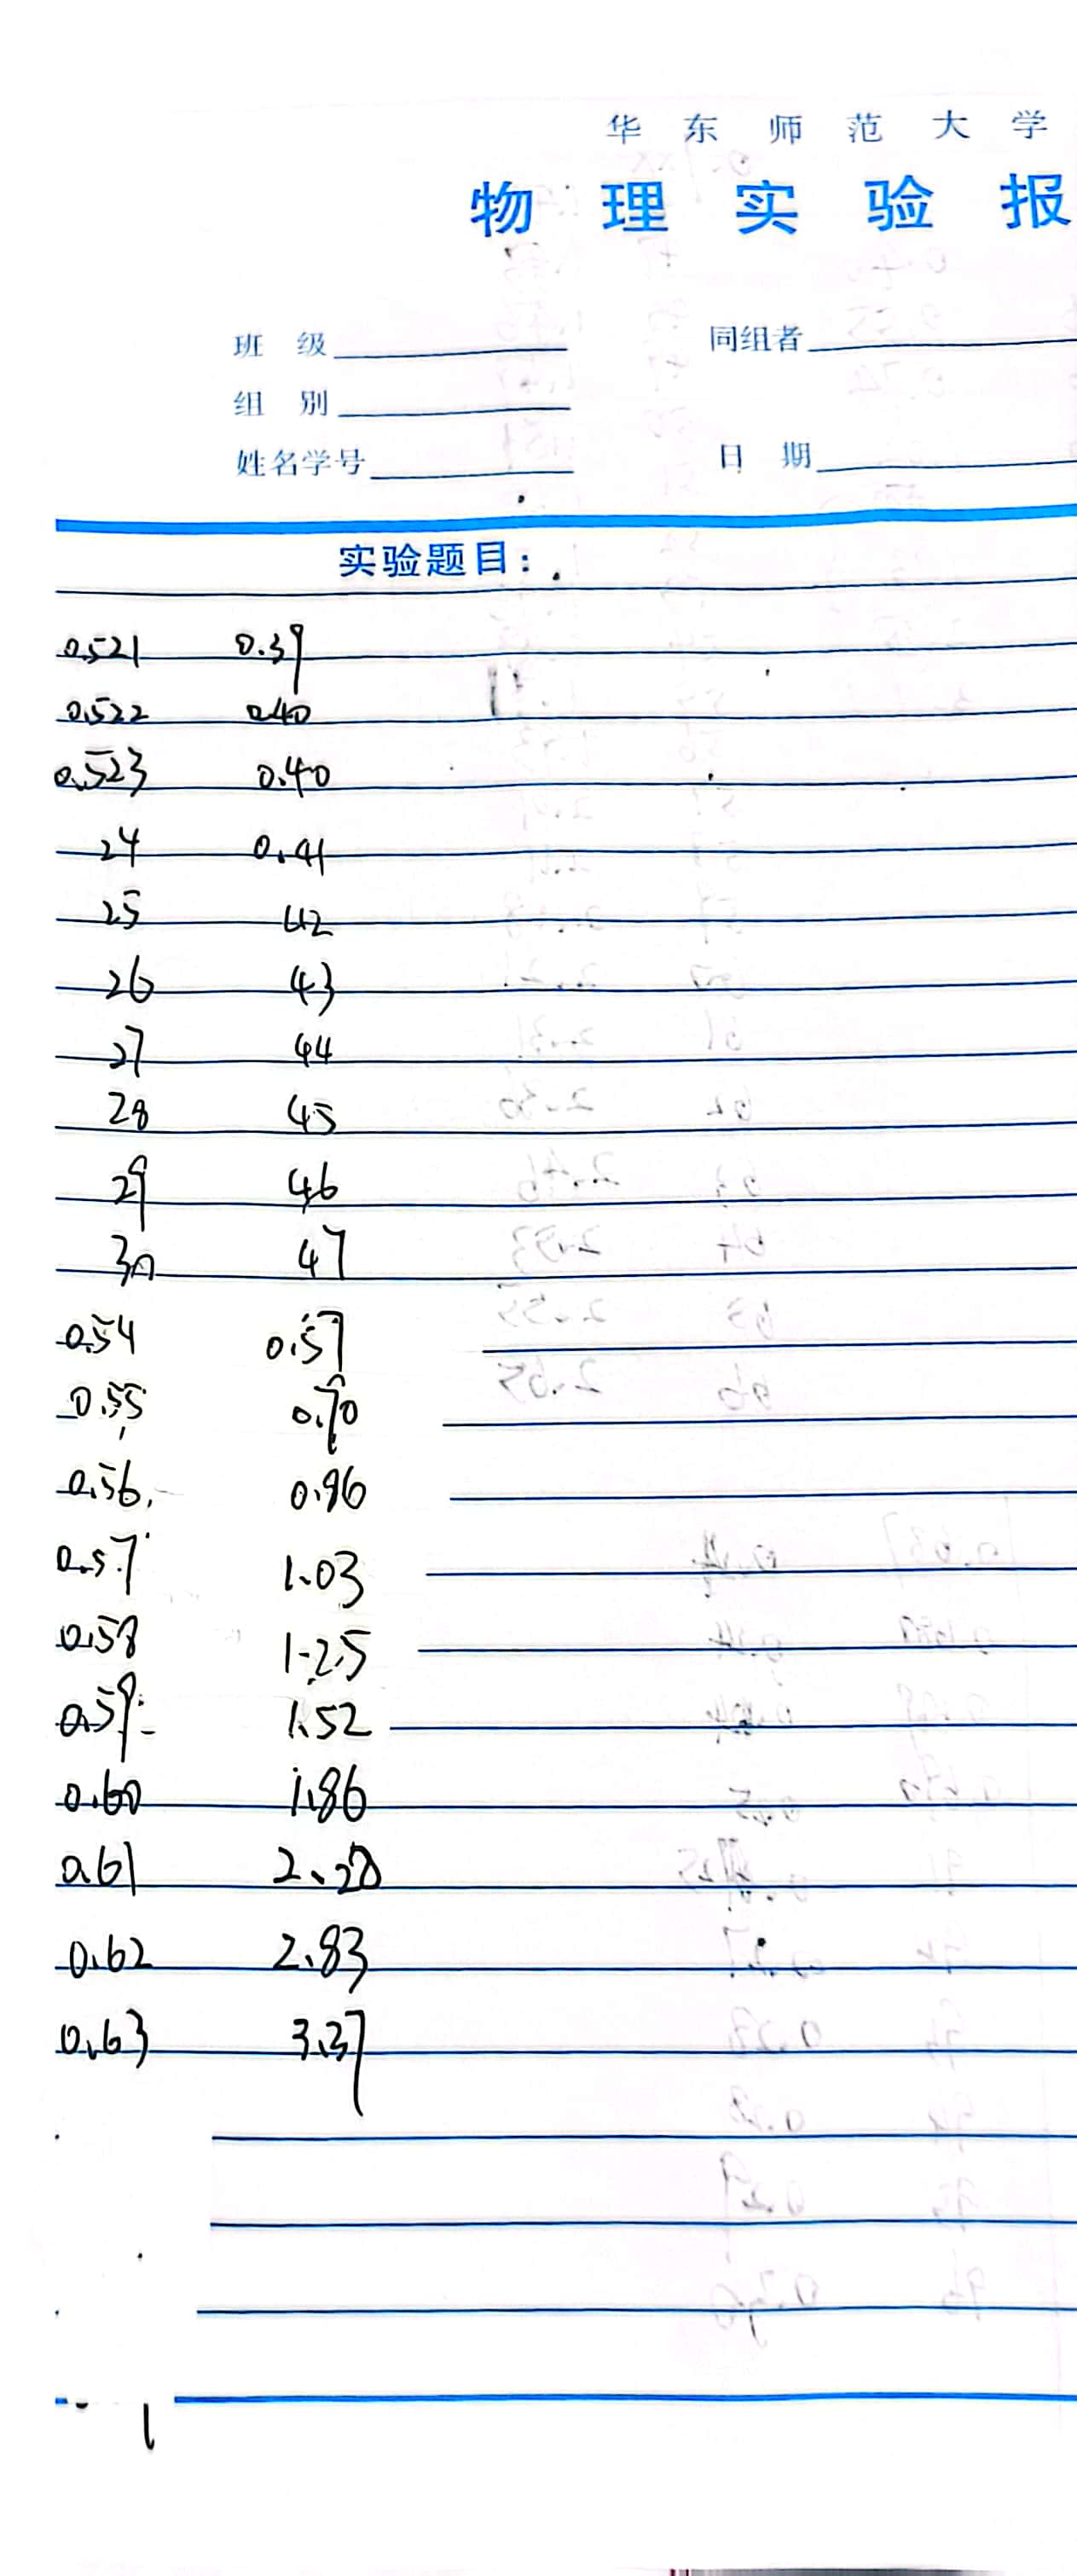 华东师范大学
物理实验报
班 级 同组者
组 别
姓名学号 日 期
实验题目：
0.521 0.39
0.522 0.40
0.523 0.40
24 0.41
25 42
26 43
27 44
28 45
29 46
30 47
0.54 0.57
0.55 0.70
0.56 0.86
0.57 1.03
0.58 1.25
0.59 1.52
0.60 1.86
0.61 2.28
0.62 2.83
0.63 3.37